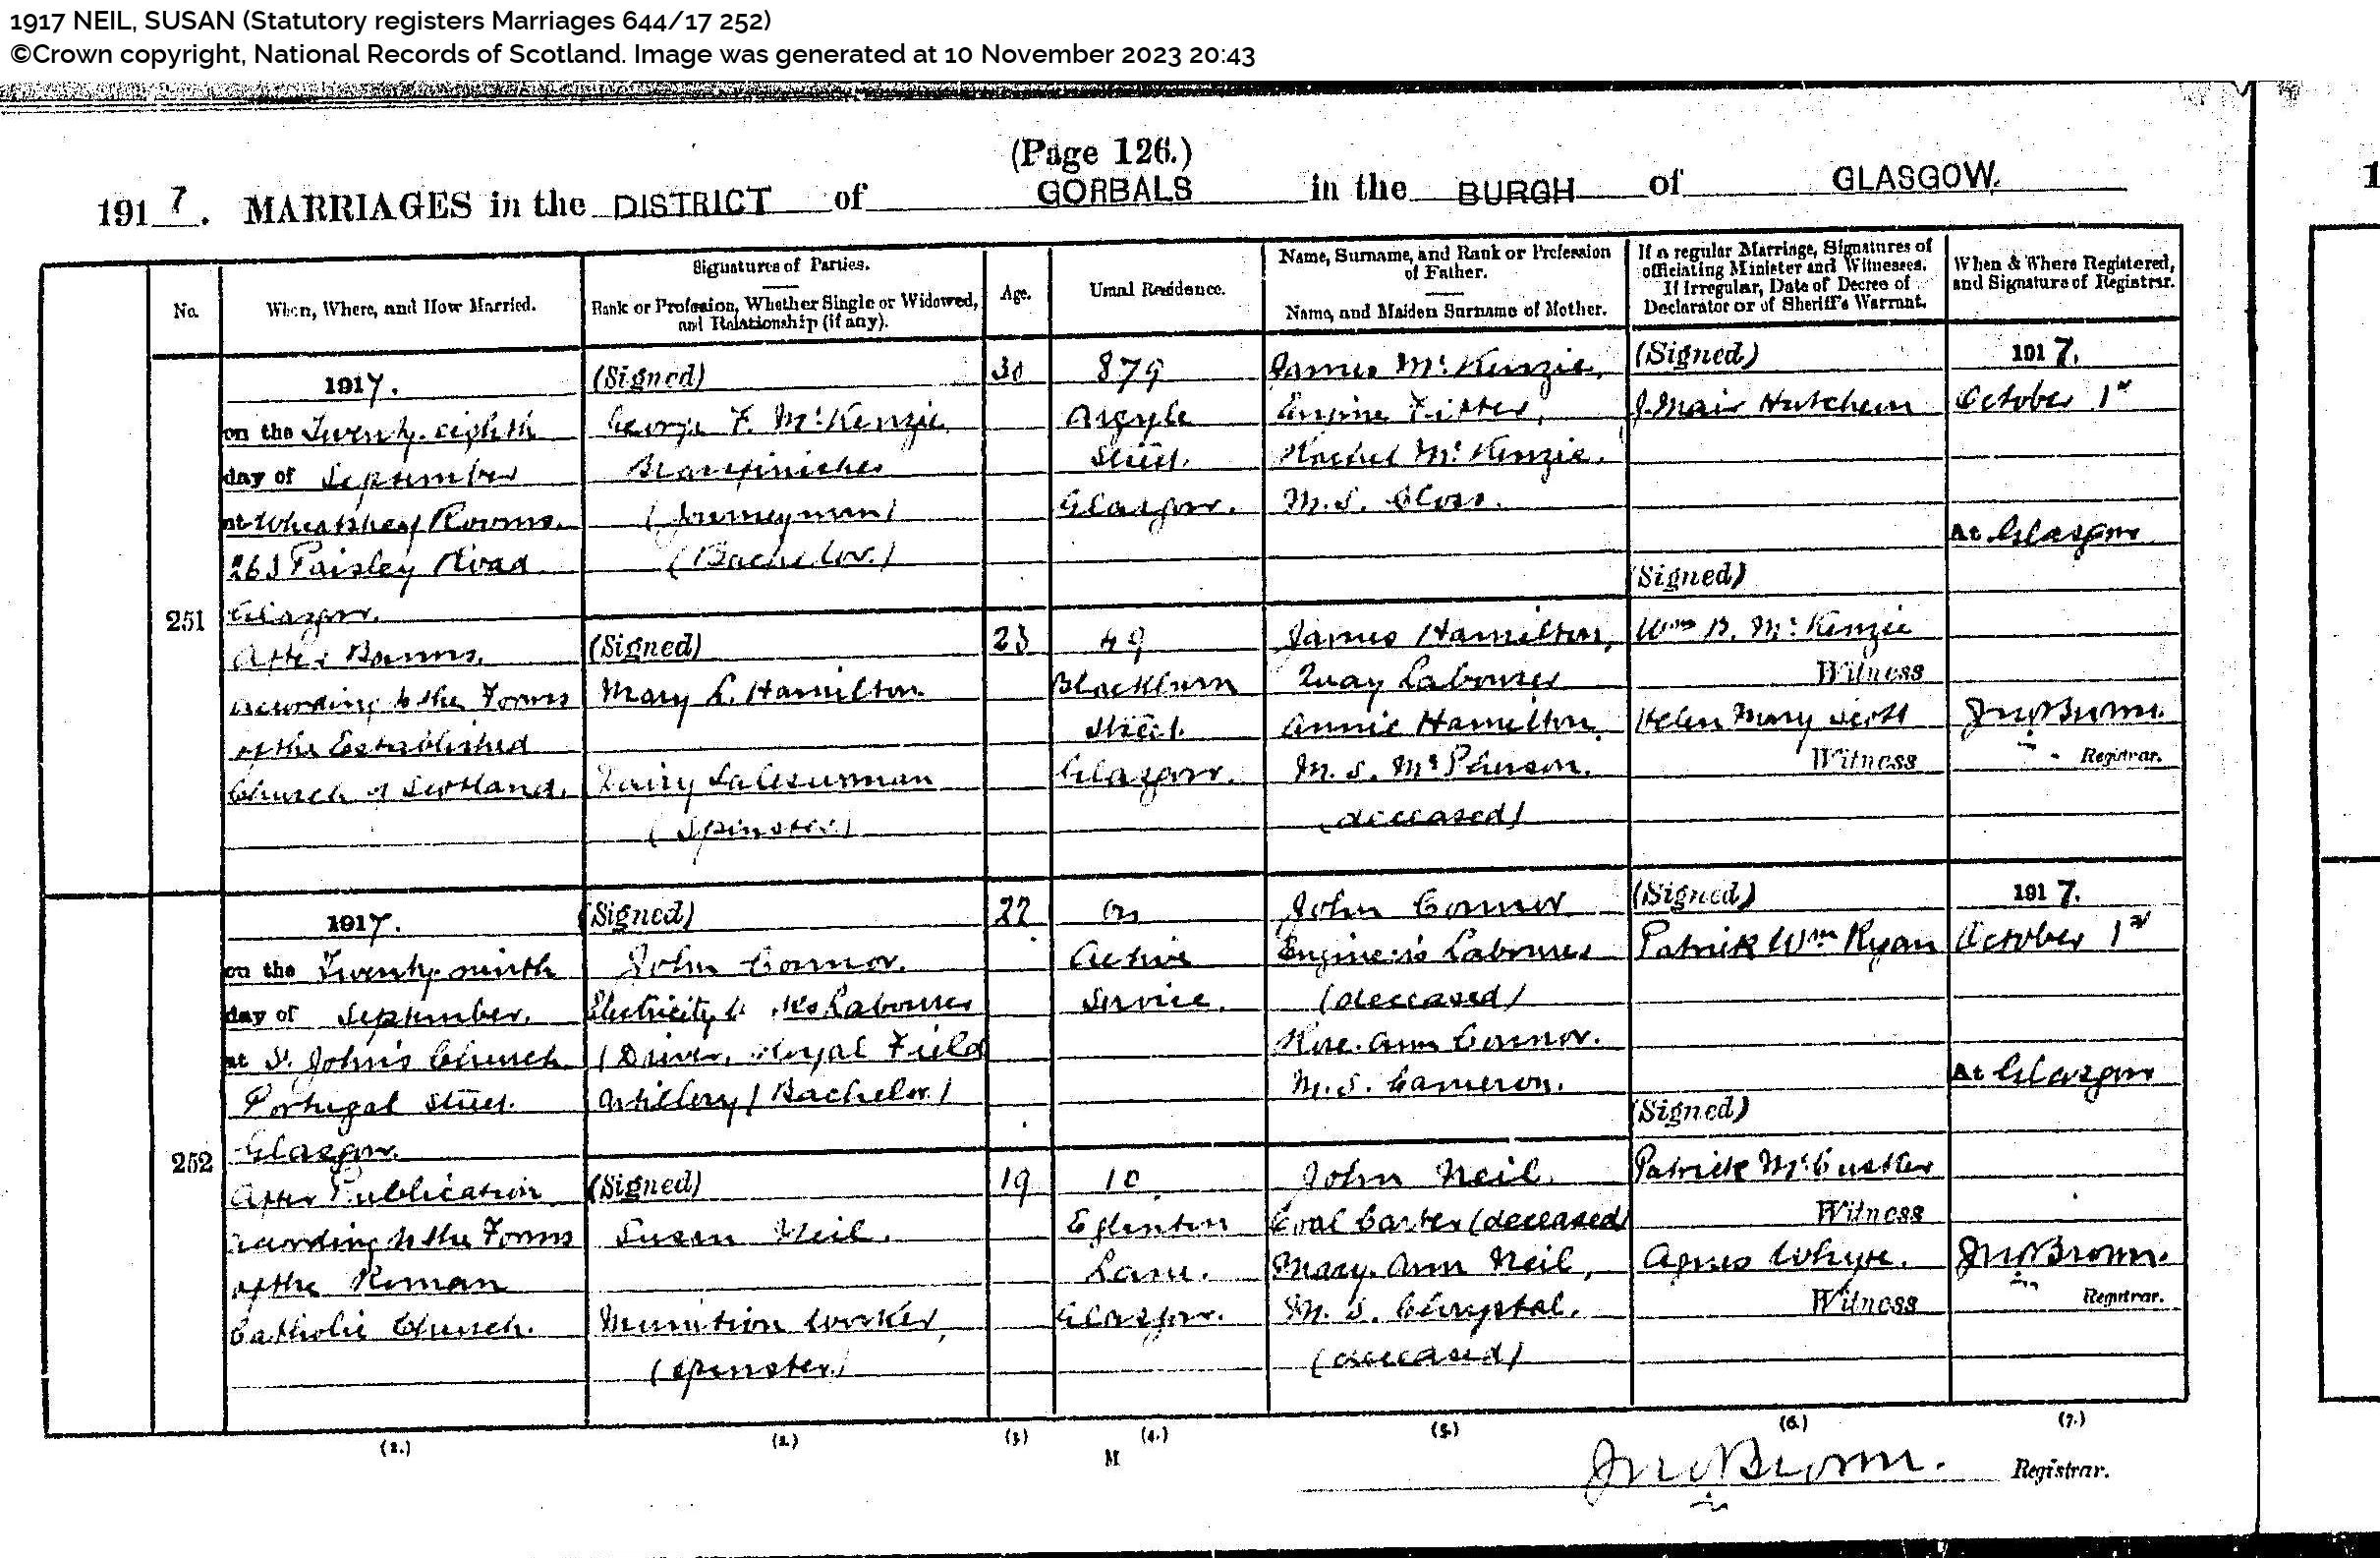 1917 NEIL, SUSAN (Statutory registers Marriages 644/17 252)
©Crown copyright, National Records of Scotland. Image was generated at 10 November 2023 20:43
(Page 126.)
1917. MARRIAGES in the DISTRICT of GORBALS in the BURGH of GLASGOW.
No.
When, Where, and How Married.
Signatures of Parties.
Rank or Profession, Whether Single or Widowed,
and Relationship (if any).
Age.
Usual Residence.
Name, Surname, and Rank or Profession
of Father.
Name, and Maiden Surname of Mother.
If a regular Marriage, Signatures of
officiating Minister and Witnesses.
If Irregular, Date of Decree of
Declarator or of Sheriff's Warrant.
When & Where Registered,
and Signature of Registrar.
251
1917.
on the Twenty-eighth
day of September
at Wheatsheaf Rooms.
263 Paisley Road
Glasgow.
After Banns.
according to the Forms
of the Established
Church of Scotland.
(Signed)
George F. McKenzie
Brassfinisher
(Journeyman)
(Bachelor.)
(Signed)
Mary L. Hamilton.
Dairy Saleswoman
(Spinster)
30
23
879
Argyle
Street.
Glasgow.
49
Blackburn
Street.
Glasgow.
James McKenzie,
Engine Fitter,
Rachel McKenzie.
M.S. Closs.
James Hamilton,
Quay Labourer
Annie Hamilton.
M.S. McPherson.
(deceased)
(Signed)
J. Mair Hutcheon
(Signed)
Wm B. McKenzie
Witness
Helen Mary Scott
Witness
1917.
October 1st
At Glasgow
Jno Brown.
Registrar.
252
1917.
on the Twenty-ninth
day of September.
at St. John's Church.
Portugal Street.
Glasgow.
After Publication
according to the Forms
of the Roman
Catholic Church.
(Signed)
John Connor.
Electricity Labourer
(Driver, Royal Field
Artillery) (Bachelor.)
(Signed)
Susan Neil.
Munition Worker,
(Spinster.)
22
19
On
Active
Service.
10
Eglinton
Lane.
Glasgow.
John Connor
Engineer's Labourer
(deceased)
Rose Ann Connor.
M.S. Cameron.
John Neil.
Coal Carter (deceased)
Mary Ann Neil,
M.S. Chrystal.
(deceased)
(Signed)
Patrick Wm Ryan
(Signed)
Patrick McCusker
Witness
Agnes Whyte.
Witness
1917.
October 1st
At Glasgow
Jno Brown.
Registrar.
(1.) (2.) (3.) (4.) (5.) (6.) (7.)
M
Jno Brown. Registrar.